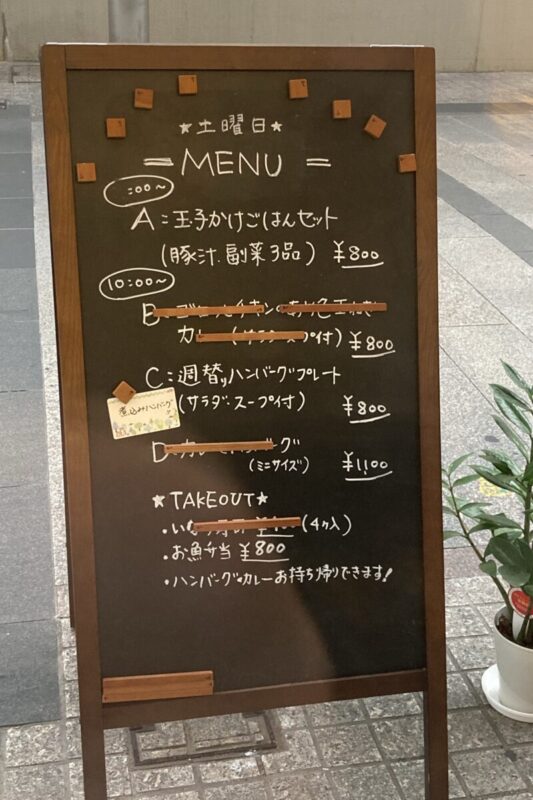 ★土曜日★
= MENU =
:00〜
A:玉子かけごはんセット
(豚汁.副菜3品) ¥800
10:00〜
B
カ プ付) ¥800
C:週替りハンバーグプレート
(サラダ.スープ付) ¥800
煮込みハンバーグ
D グ
(ミニサイズ) ¥1,100
★TAKEOUT★
・い (4ヶ入)
・お魚弁当 ¥800
・ハンバーグ・カレーお持ち帰りできます!